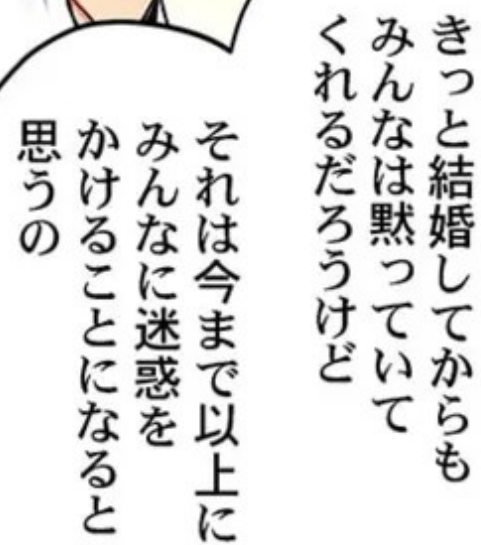 きっと結婚してからも
みんなは黙っていて
くれるだろうけど
それは今まで以上に
みんなに迷惑を
かけることになると
思うの